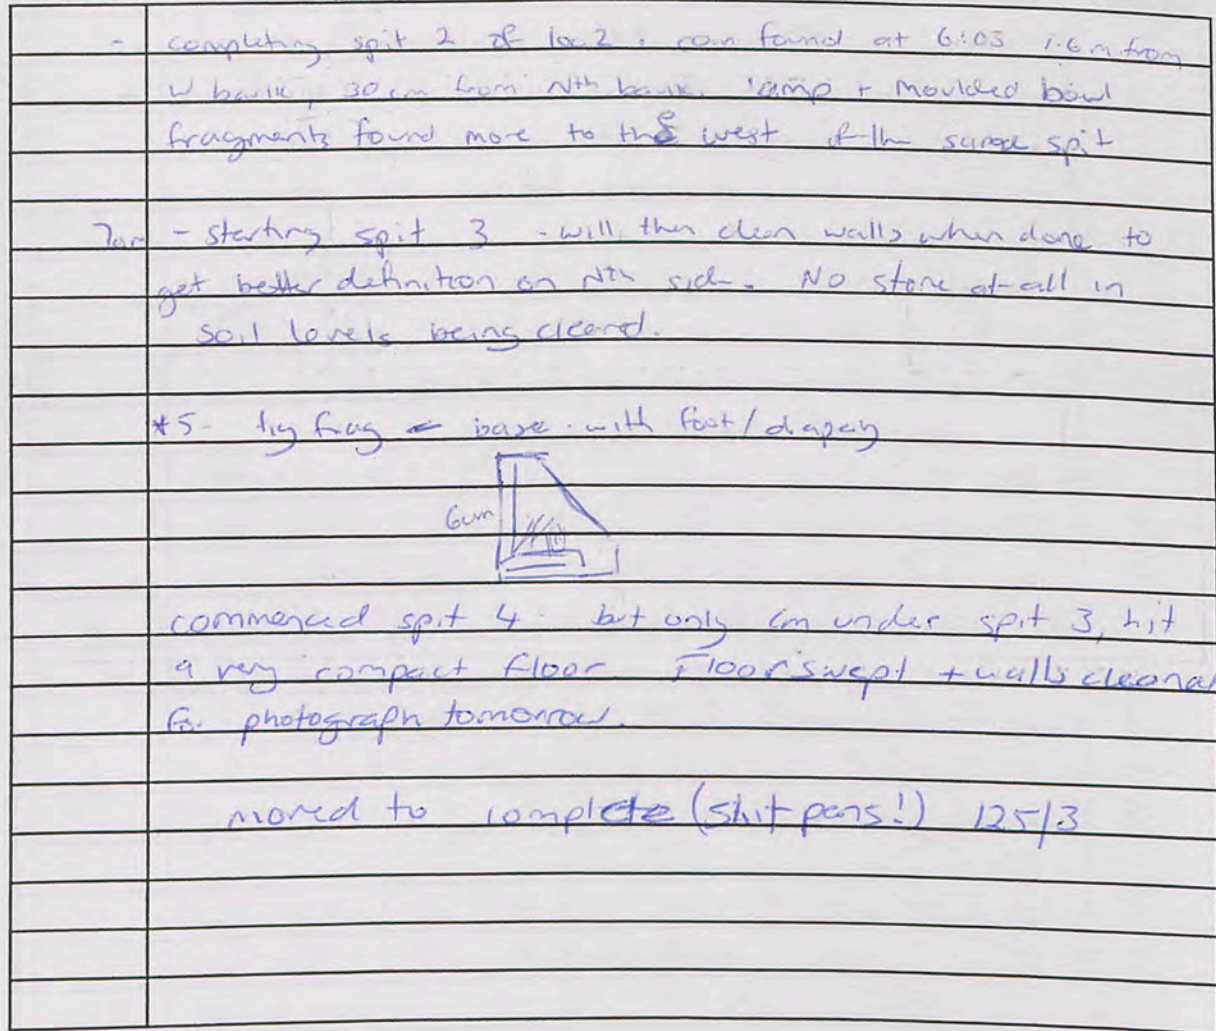 - completing spit 2 of loc 2. coin found at 6:03 1.6m from
W baulk, 30 cm from Nth baulk. lamp + moulded bowl
fragments found more to the west of the same spit
7am - starting spit 3 - will then clean walls when done to
get better definition on Nth side. NO stone at all in
soil levels being cleared.
*5- fig frag - base with foot/drapery
6cm
commenced spit 4. but only cm under spit 3, hit
a very compact floor. Floor swept + walls cleaned
for photograph tomorrow.
moved to complete (shit pens!) 125/3